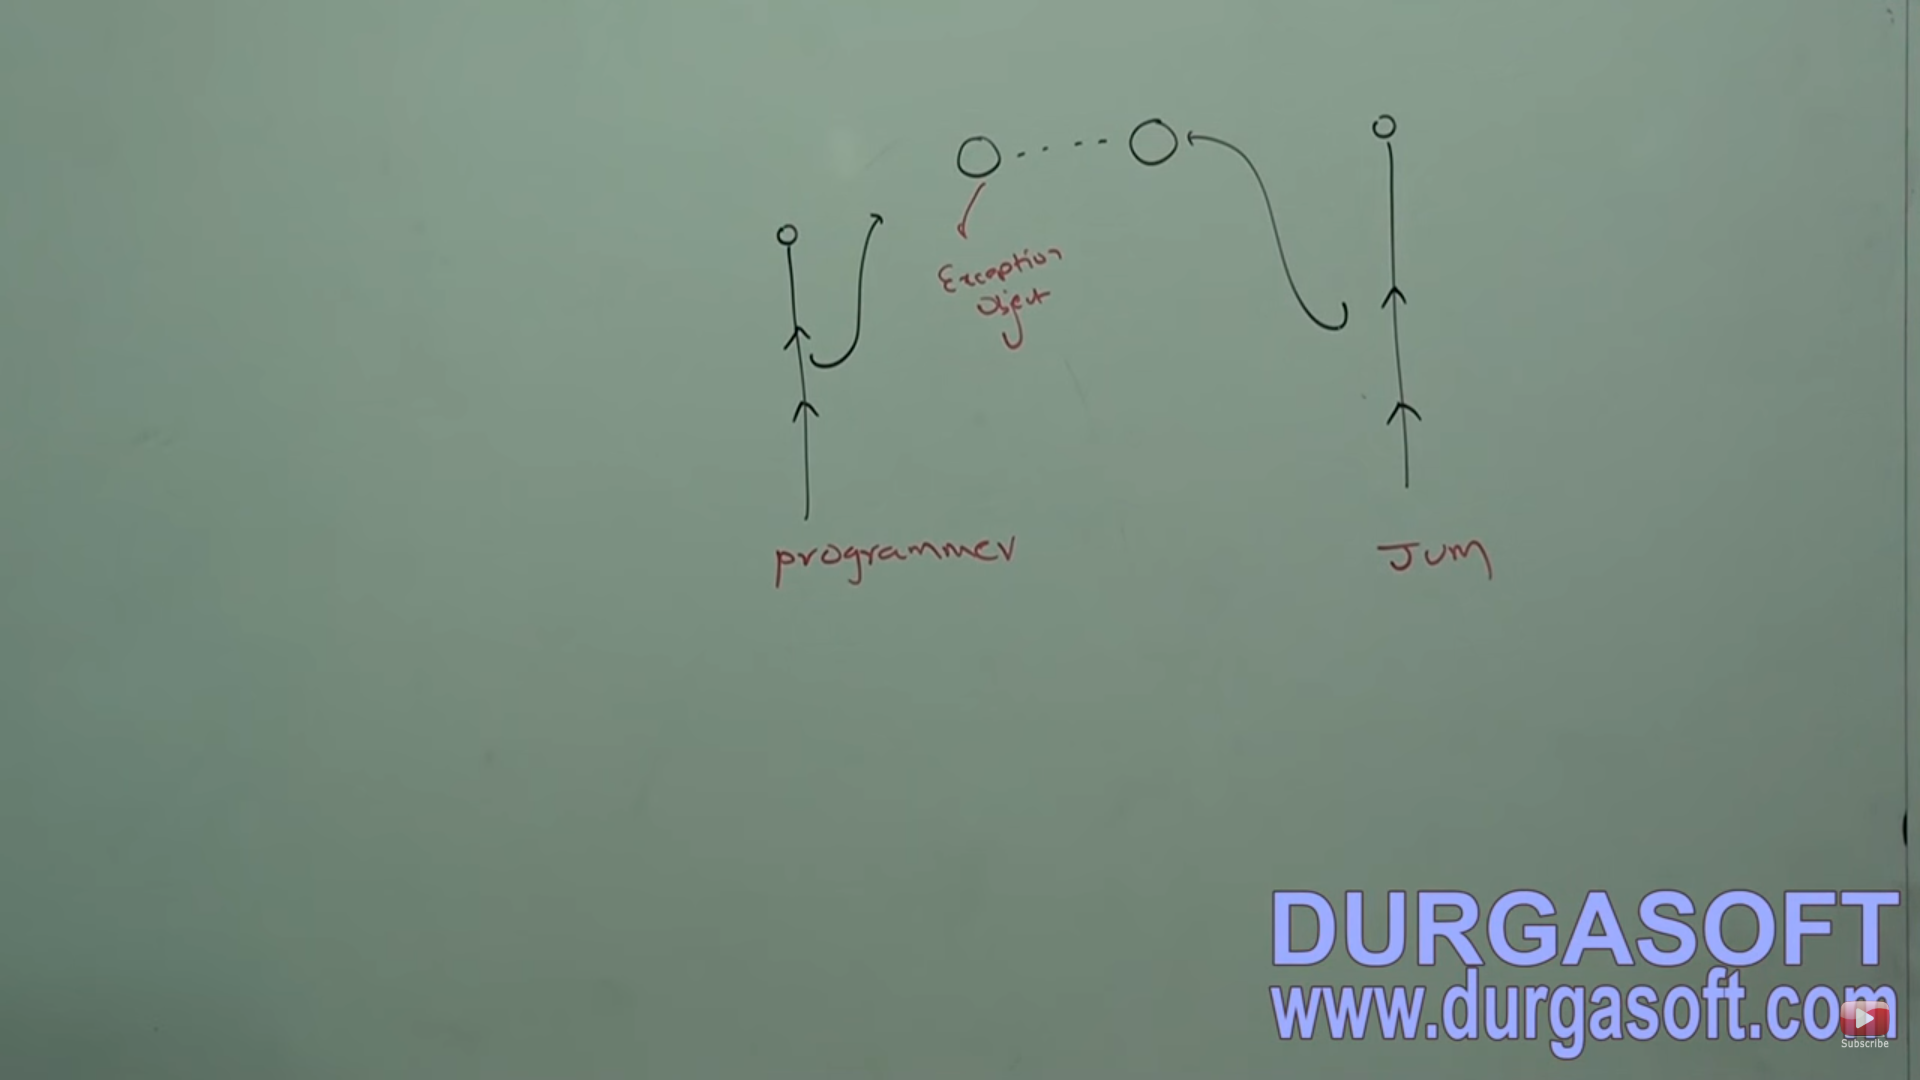 Exception
Object
programmer
JVM
DURGASOFT
www.durgasoft.com
Subscribe